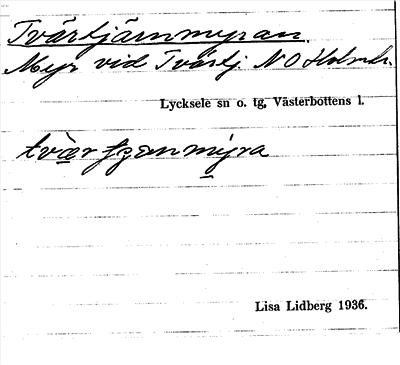 Tvärtjärnmyran.
Myr vid Tvärtj. NO Holmtr.
Lycksele sn o. tg, Västerbottens l.
tvær
Lisa Lidberg 1936.